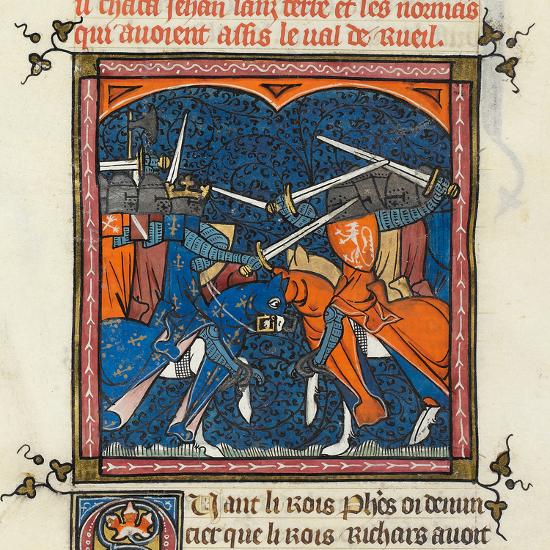 il chaca Jehan sanz terre et les normās
qui avoient assis le val de Rueil.
Quant li rois Phēs oi denun
cier que li rois Richars avoit